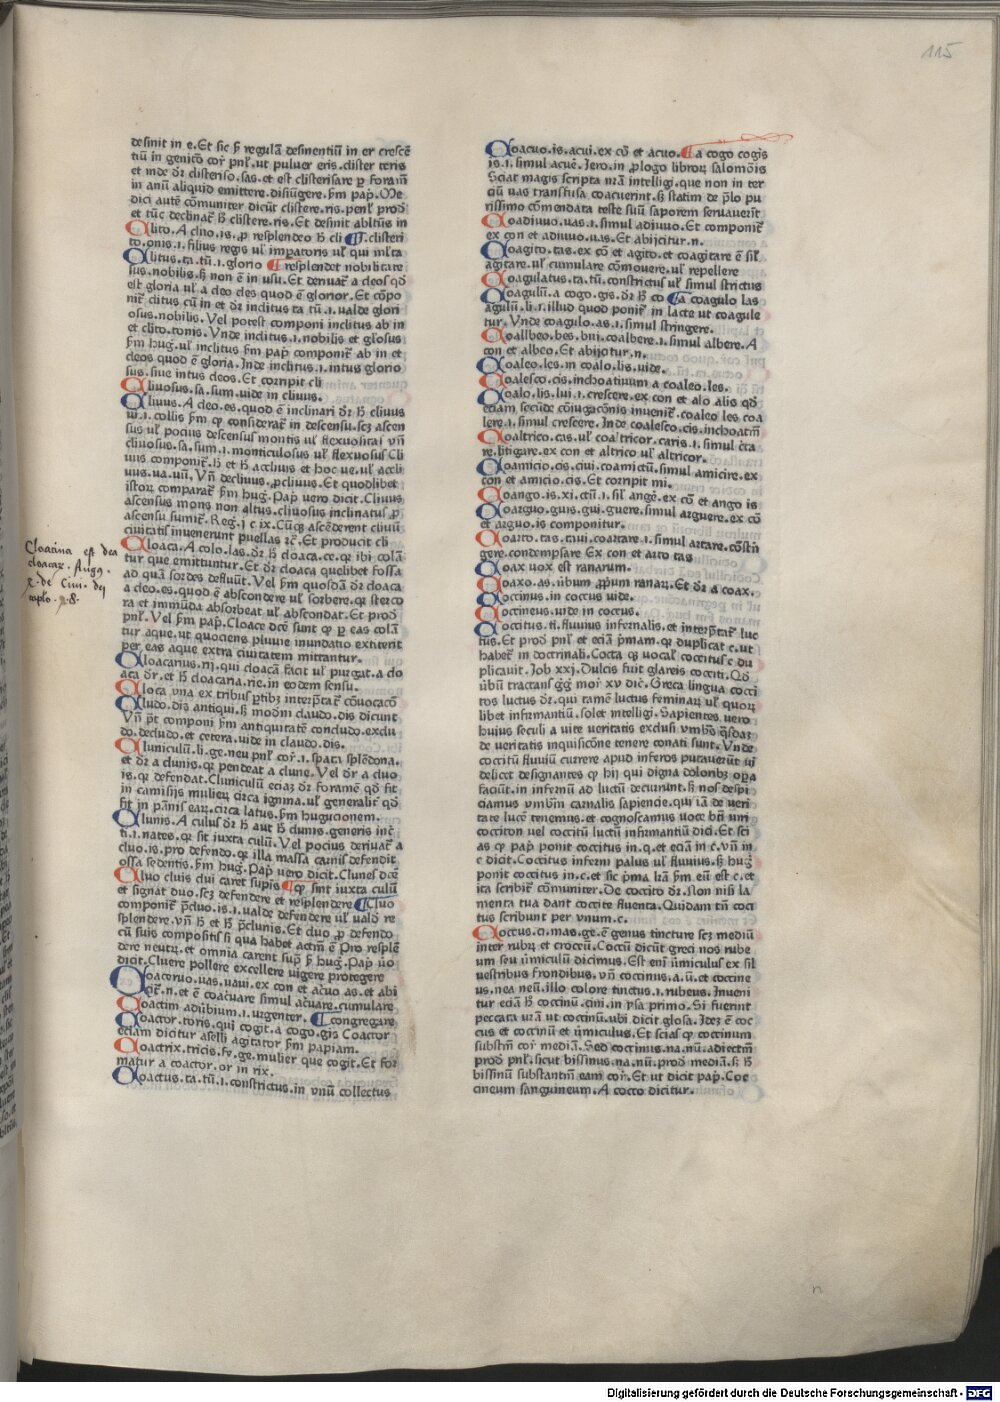 115
desinit in e. Et sic p̱ regulā desinentiū in er crescē
tiū in genico cor̄ pnl̄. ut puluer eris. clister teris
et inde dr̄ clisteriso. sas. et est clisterisare p̱ foram̄
in anū aliquid emittere. disiūgere. s̄m pap̄. Me
dici autē cōmuniter dicūt clistere. ris. penl̄ prod̄
et tūc declinat̄ h̄ clistere. ris. Et desinit abltūs in
Clito. A clino. is. p̱ resplendeo h̄ cli ¶ I. clisteri
to. onis. i. filius regis ul̄ imp̱atoris ul̄ qui ml̄ta
Clitus. ta. tū. i. glorio ¶ resplendet nobilitate
sus. nobilis. s̄ non ē in usu. Et deriuat̄ a cleos qd̄
est gloria ul̄ a cleo cles quod ē glorior. Et cōpo
nit̄ clitus cū in et dr̄ inclitus ta tū. i. ualde glori
osus. nobilis. Vel potest componi inclitus ab in
et clito. tonis. Vnde inclitus. i. nobilis et gl̄osus
s̄m huḡ. ul̄ inclitus s̄m pap̄ componit̄ ab in et
cleos quod ē gloria. Inde inclitus. i. intus glorio
sus. siue intus cleos. Et corripit cli
Cliuosus. sa. sum. uide in cliuus.
Cliuus. A cleo. es. quod ē inclinari dr̄ h̄ cliuus
ui. i. collis s̄m qp̱ considerat̄ in descensu. scz̄ ascen
sus ul̄ pocius descensus montis ul̄ flexuositas vn̄
cliuosus. sa. sum. i. monticulosus ul̄ flexuosus Cli
uus componit̄. h̄ et h̄ accliuis et hoc ue. ul̄ accli
uus. ua. uū. Vn̄ decliuus. p̱cliuus. Et quodlibet
istor̄ comparat̄ s̄m huḡ. Pap̄ uero dicit. Cliuus
ascensus mons non altus. cliuosus inclinatus p̱
ascensu sumit̄. Reḡ. j c ix. Cūq̄ ascēderent cliuū
ciuitatis inuenerunt puellas ꝛc̄. Et producit cli
Cloaca. A colo. las. dr̄ h̄ cloaca. ce. q̄ ibi colan̄
tur que emittuntur. Et dr̄ cloaca quelibet fossa
ad quā sordes defluūt. Vel s̄m quosdā dr̄ cloaca
a cleo. es. quod ē abscondere ul̄ sorbere. q̄ sterco
ra et immūda absorbeat ul̄ abscondat. Et prod̄
pnl̄. Vel s̄m pap̄. Cloace dc̄e sunt qp̱ p̱ eas colan̄
tur aque. ut quociens pluuie inundatio extiterit
per eas aque extra ciuitatem mittantur.
Cloacarius. rij. qui cloacā facit ul̄ purgat. a clo
aca dr̄. et h̄ cloacaria. rie. in eodem sensu.
Cloca vna ex tribus p̱tibz̄ interp̱tat̄ cōuocacō
Cludo. dis̄ antiqui. s̄ modīn claudo. dis dicunt
Vn̄ p̄t componi s̄m antiquitatē concludo. exclu
do. decludo. et cetera. uide in claudo. dis.
Cluniculū. li. ge. neu pnl̄ cor̄. i. spacā splēdona.
et dr̄ a clunis. q̄ pendeat a clune. Vel dr̄ a cluo
is. q̄ defendat. Cluniculū eciaz̄ dr̄ foramē qd̄ fit
in camisijs mulier̄ circa ignima. ul̄ generalit̄ qd̄
fit in pānis ear̄. circa latus. s̄m hugucionem.
Clunis. A culus dr̄ h̄ aut̄ h̄ clunis. generis inc̄
ti. i. nates. q̄ sit iuxta culū. Vel pocius deriuat̄ a
cluo. is. pro defendo. q̄ illa massa carnis defendit
ossa sedentis. s̄m huḡ. Pap̄ uero dicit. Clunes dc̄e
Cluo cluis clui caret supis ¶ qp̱ sint iuxta culū
et signat duo. scz̄ defendere et resplendere ¶ Cluo
componit̄ p̄cluo. is. i. ualde defendere ul̄ uald re
splendere. vn̄ h̄ et h̄ p̄clunis. Et cluo p̱ defendo
cū suis compositis si qua habet actm̄ ē Pro resplē
dere neutr̄. et omnia carent sup̄ s̄ huḡ. Pap̄ ūo
dicit. Cluere pollere excellere uigere protegere
Coaceruo. uas. uaui. ex con et ac̄uo as. et abi
cit̄. n. et ē coac̄uare simul ac̄uare. cumulare
Coactim adūbium. i. urgenter. ¶ congregare
Coactor. toris. qui cogit. a cogo. gis Coactor
eciam dicitur aselli agitator s̄m papiam.
Coactrix. tricis. fe. ge. mulier que cogit. Et for
matur a coactor. or in rix.
Coactus. ta. tū. i. constrictus. in vnū collectus
Cloacina est dea
cloacar̄. Aug9.
de Ciui. dei
Coacuo. is. acui. ex cō et acuo. ¶ a cogo cogis
is. i. simul acuē. Jero. in p̱logo libror̄ salomōis
Sciat magis scripta nrā intelligi. que non in ter
ciū uas transfusa coacuerint. s̄ statim de p̱lo pu
rissimo cōmendata teste suū saporem seruauerit
Coadiuuo. uas. i. simul adiuuo. Et componit̄
ex con et adiuuo. u.is. Et abijcitur. n.
Coagito. tas. ex cō et agito. et coagitare ē sil̄
agitare. ul̄ cumulare cōmouere. ul̄ repellere
Coagulatus. ta. tū. constrictus ul̄ simul strictus
Coagulū. a cogo. gis. dr̄ h̄ co ¶ a coagulo las
agulū. li. i. illud quod ponit̄ in lacte ut coagule
tur. Vnde coagulo. as. i. simul stringere.
Coallbeo. bes. bui. coalbere. i. simul albere. A
con et albeo. Et abijcitur. n.
Coaleo. les. in coalo. lis. uide.
Coalesco. cis. inchoatiuum a coaleo. les.
Coalo. lis. lui. i. crescere. ex con et alo alis qd̄
eciam secūde cōiugacōnis inuenit̄. coaleo les coa
lere. i. simul crescere. Inde coalesco. cis. inchoatm̄
Coaltrico. cas. ul̄ coaltricor. caris. i. simul c̄ta
re. litigare. ex con et altrico ul̄ altricor.
Coamicio. cis. ciui. coamictū. simul amicire. ex
con et amicio. cis. Et corripit mi.
Coango. is. xi. ctū. i. sil̄ angē. ex cō et ango is
Coarguo. guis. gui. guere. simul arguere. ex cō
et arguo. is componitur.
Coarto. tas. taui. coartare. i. simul artare. cōstrī
gere. condempsare Ex con et arto tas
Coax uox est ranarum.
Coaxo. as. ūbum p̱p̱um ranar̄. Et dr̄ a coax.
Coccinus. in coccus uide.
Coccineus. uide in coccus.
Coccitus. ti. fluuius infernalis. et interp̱tat̄ luc
tus. Et prod̄ pnl̄ et eciā p̱mam. q̄ duplicat c. ut
habet̄ in doctrinali. Cocta q̄ uocal̄ coccitus c du
plicauit. Job xxj. Dulcis fuit glareis cocciti. Qd̄
ūbū tractans gḡ mor̄ xv dic̄. Greca lingua cocci
tos luctus dr̄. qui tamē luctus feminar̄ ul̄ quor̄
libet infirmantiū. solet intelligi. Sapientes uero
huius seculi a uite ueritatis exclusi vmb̄ qs̄daz̄
de ueritatis inquisicōne tenere conati sunt. Vnde
coccitū fluuiū currere apud inferos putauerūt ui
delicet designantes qp̱ hij qui digna dolorib̄ op̱a
faciūt. in infernū ad luctū decurunt. s̄ nos despi
ciamus vmb̄m carnalis sapiencie. qui iā de ueri
tate lucē tenemus. et cognoscamus uoce bti̅ uiri
cocciton uel coccitū luctū infirmantiū dici. Et sci
as qp̱ pap̄ ponit coccitus in. q. et eciā in c. vn̄ in
c dicit. Coccitus inferni palus ul̄ fluuius. s̄ huḡ
ponit coccitus in. c. et sic p̱ma lrā s̄m eū est c. et
ita scribit̄ cōmuniter. De coccito dr̄. Non nisi la
menta tua dant coccite fluenta. Quidam tn̄ cocci
tus scribunt per vnum. c.
Coccus. ci. mas. ge. ē genus tincture scz̄ mediū
inter rubr̄ et croceū. Coccū dicūt greci nos rube
um seu ūmiculū dicimus. Est enī ūmiculus ex sil
uestribus frondibus. vn̄ coccinus. a. ū. et coccine
us. nea neū. illo colore tinctus. i. rubeus. Inueni
tur eciā h̄ coccinū. cini. in psa primo. Si fuerint
peccata urā ut coccinū. ubi dicit glosa. Idez̄ ē coc
cus et coccinū et ūmiculus. Et scias qp̱ coccinum
substm̄ cor̄ mediā. Sed coccinus. na. nū. adiectm̄
prod̄ pnl̄. sicut bissinus. na. nū. prod̄ mediā. s̄ h̄
bissinū substantm̄ eam cor̄. Et ut dicit pap̄. Coc
cineum sanguineum. A cocco dicitur.
n
Digitalisierung gefördert durch die Deutsche Forschungsgemeinschaft - DFG